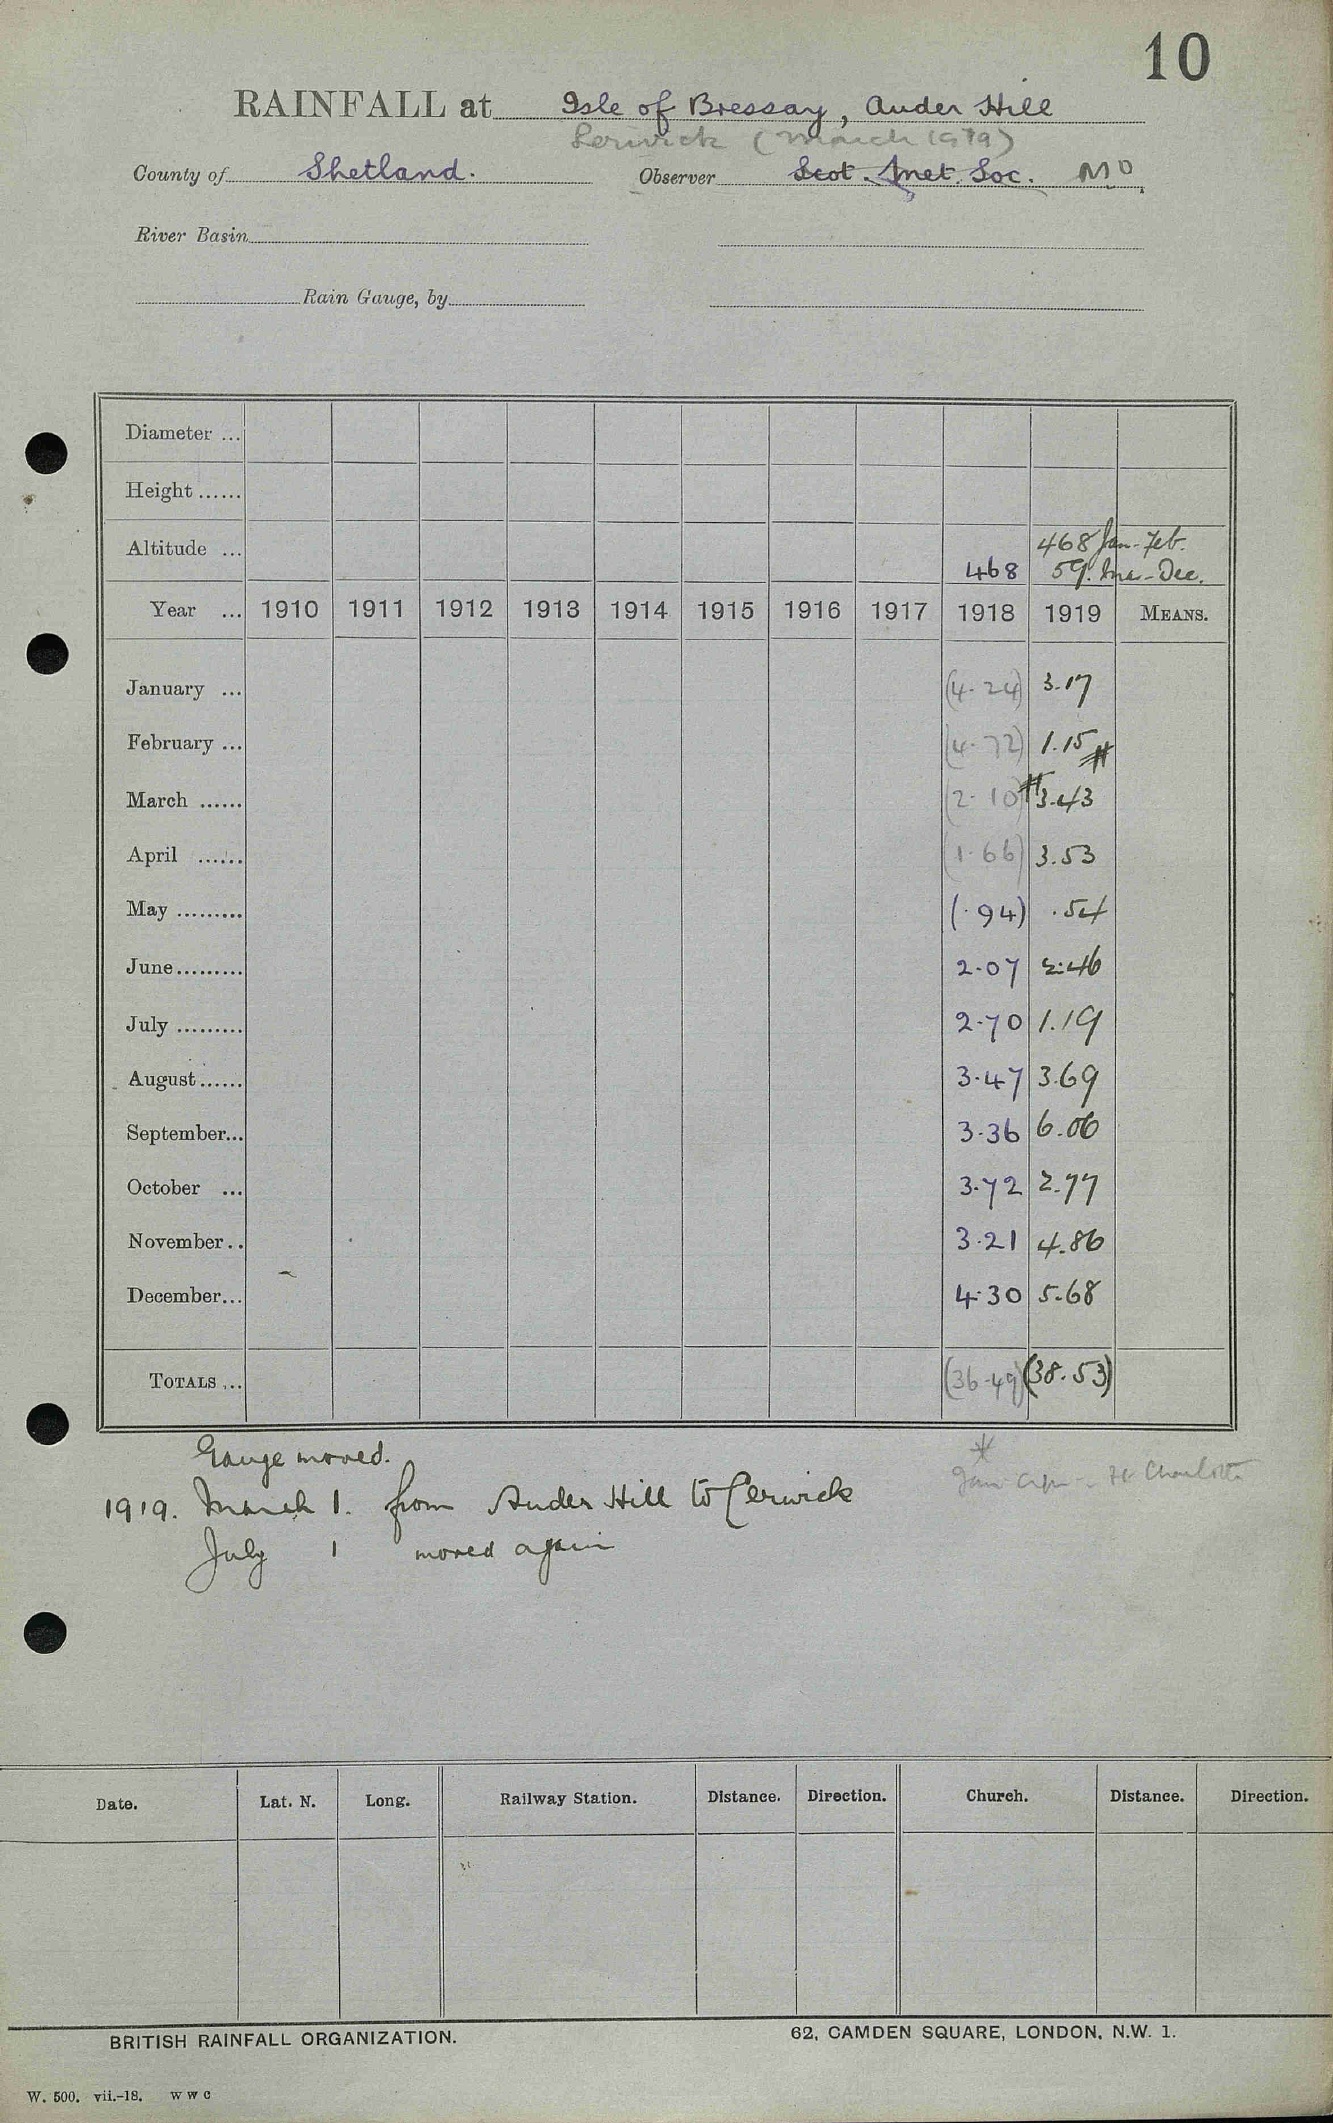 10
RAINFALL at Isle of Bressay, Ander Hill
Lerwick (March 1919)
County of Shetland. Observer Scot. Met. Soc. MO
River Basin
Rain Gauge, by
Diameter ...
Height ......
Altitude ... 468 468 Jan-Feb.
59. Mar-Dec.
Year ... 1910 1911 1912 1913 1914 1915 1916 1917 1918 1919 MEANS.
January ... (4.24) 3.17
February ... (4.72) 1.15 #
March ...... (2.10) # 3.43
April ...... (1.66) 3.53
May ......... (.94) .54
June ......... 2.07 2.46
July ......... 2.70 1.19
August ...... 3.47 3.69
September... 3.36 6.06
October ... 3.72 2.77
November.. 3.21 4.86
December... 4.30 5.68
TOTALS ... (36.49) (38.53)
Gauge moved. *
1919. March 1. from Ander Hill to Lerwick
Ft Charlotte
July 1 moved again
Date. Lat. N. Long. Railway Station. Distance. Direction. Church. Distance. Direction.
BRITISH RAINFALL ORGANIZATION. 62, CAMDEN SQUARE, LONDON, N.W. 1.
W. 500. vii.-18. W W C